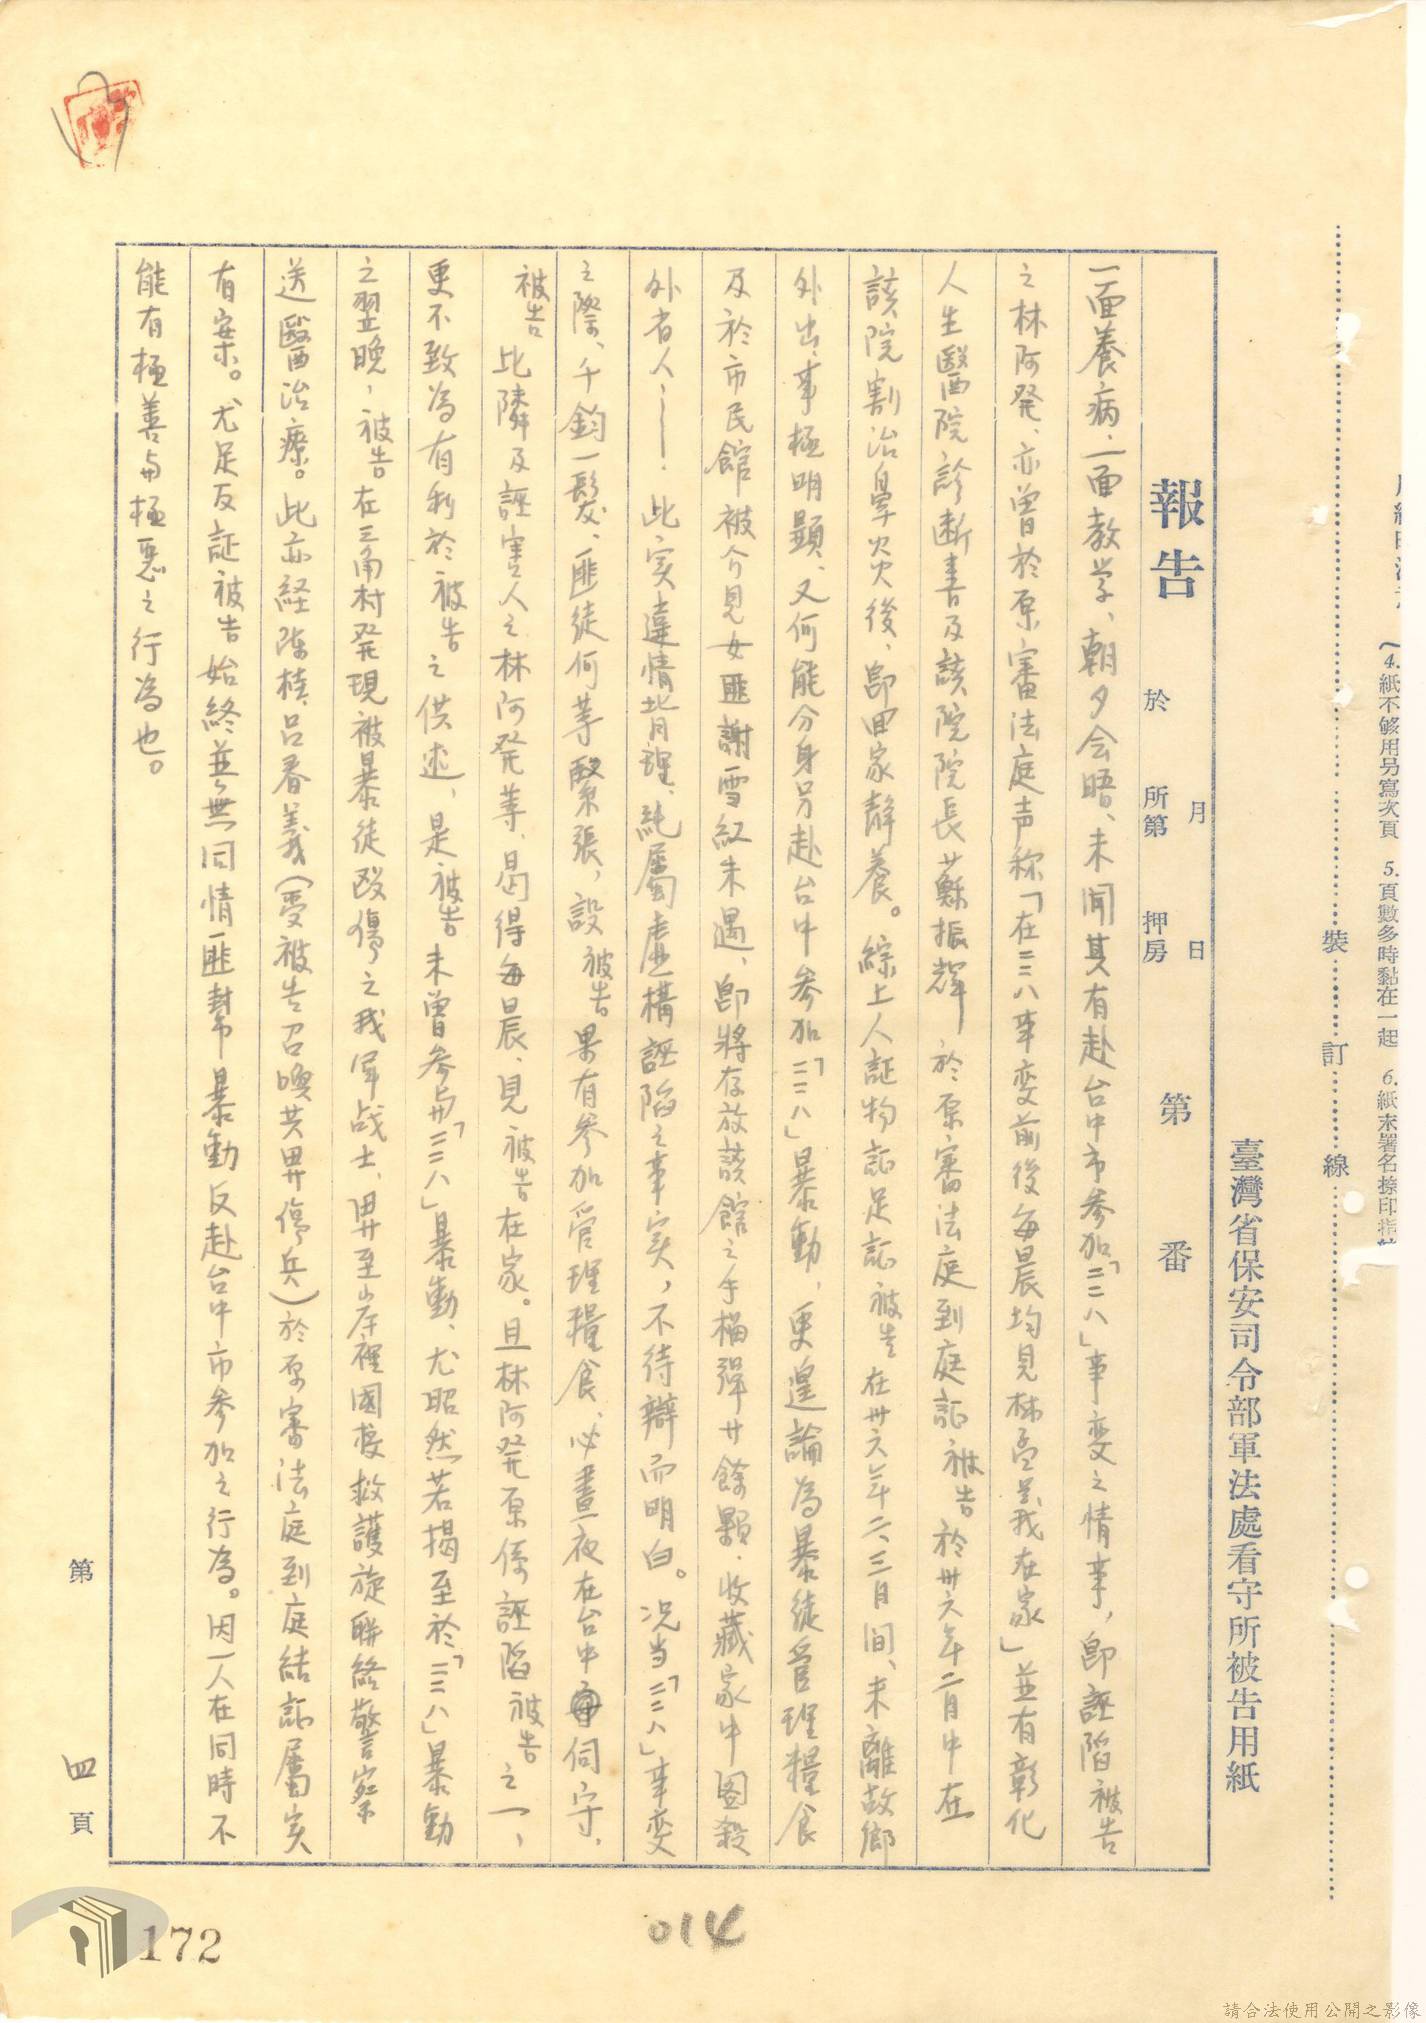 4.紙不够用另寫次頁 5.頁數多時黏在一起 6.紙末署名捺印指
裝 訂 線
臺灣省保安司令部軍法處看守所被告用紙
月 日
報告 於 所第 押房 第 番
一面養病、一面教学、朝夕会晤、未聞其有赴台中市参加「二二八」事变之情事，即誣陷被告
之林阿発、亦曾於原審法庭声称「在二二八事变前後每晨均見林 在家」並有彰化
人生醫院診断書及該院院長蘇振輝於原審法庭到庭証被告於卅六年二月中在
該院割治鼻炎後、即回家静養。綜上人証物証足証被告在卅六年二、三月間、未離故鄉
外出、事極明顯、又何能分身另赴台中参加「二二八」暴動，更遑論為暴徒管理糧食
及於市民館被介見女匪謝雪紅未遇、即將存放該館之手榴彈廿餘顆．收藏家中图殺
外省人，——．此实違情背理、純屬虚構誣陷之事实，不待辯而明白。况当「二二八」事变
之際、千鈞一髮、匪徒何等緊張，設被告果有参加管理糧食、必晝夜在台中伺守、
被告比隣及誣害人之林阿発等、曷得每晨、見被告在家。且林阿発原係誣陷被告之一，
更不致為有利於被告之供述，是被告未曾参与「二二八」暴動、尤昭然若揭至於「二二八」暴動
之翌晚，被告在三角村発現被暴徒毆傷之我軍战士、舁至 裡國校救護旋聯絡警察
送醫治療。此亦経陈 、呂春義（受被告召喚共舁傷兵）於原審法庭到庭結証屬实
有案。尤足反証被告始終並無同情匪幫暴動反赴台中市参加之行為。因一人在同時不
能有極善与極惡之行為也。
第 四 頁
172
014
請合法使用公開之影像